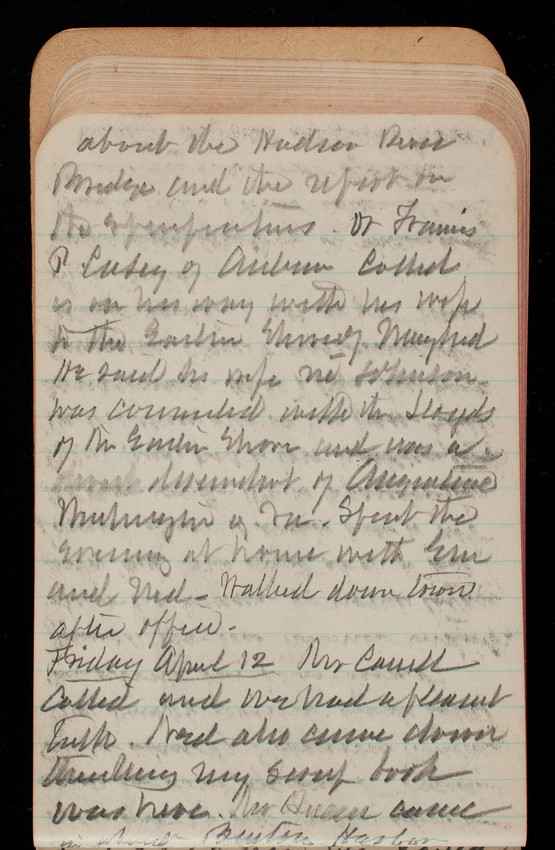 about the Hudson River
Bridge and the report on
the specifications. Dr Francis
P Casey of Auburn called
is on his way with his wife
to the Eastern Shore of Maryland
He said his wife neé Johnson
was connected with the Lloyds
of the Eastern Shore and was a
descendant of Augustine
Washington of Va. Spent the
Evening at home with Em
and Ned - Walked down town
after office -
Friday April 12 Mr
Called and we had a pleasant
talk. Ned also came down
thinking my scrap book
was here. Mr came
in about Benton Harbor